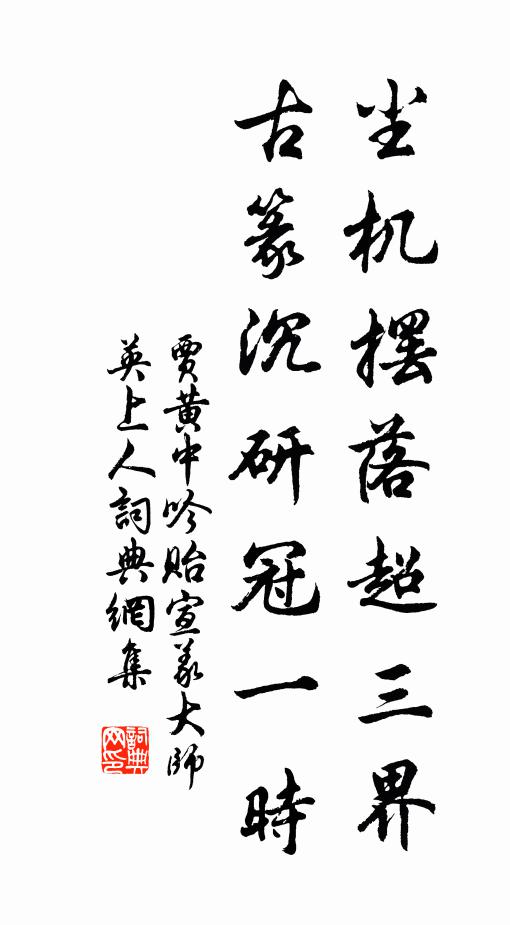 尘机摆落超三界
古篆沉研冠一時
賈黄中吟貽宣義大師
英上人詞典網集
詞典网印